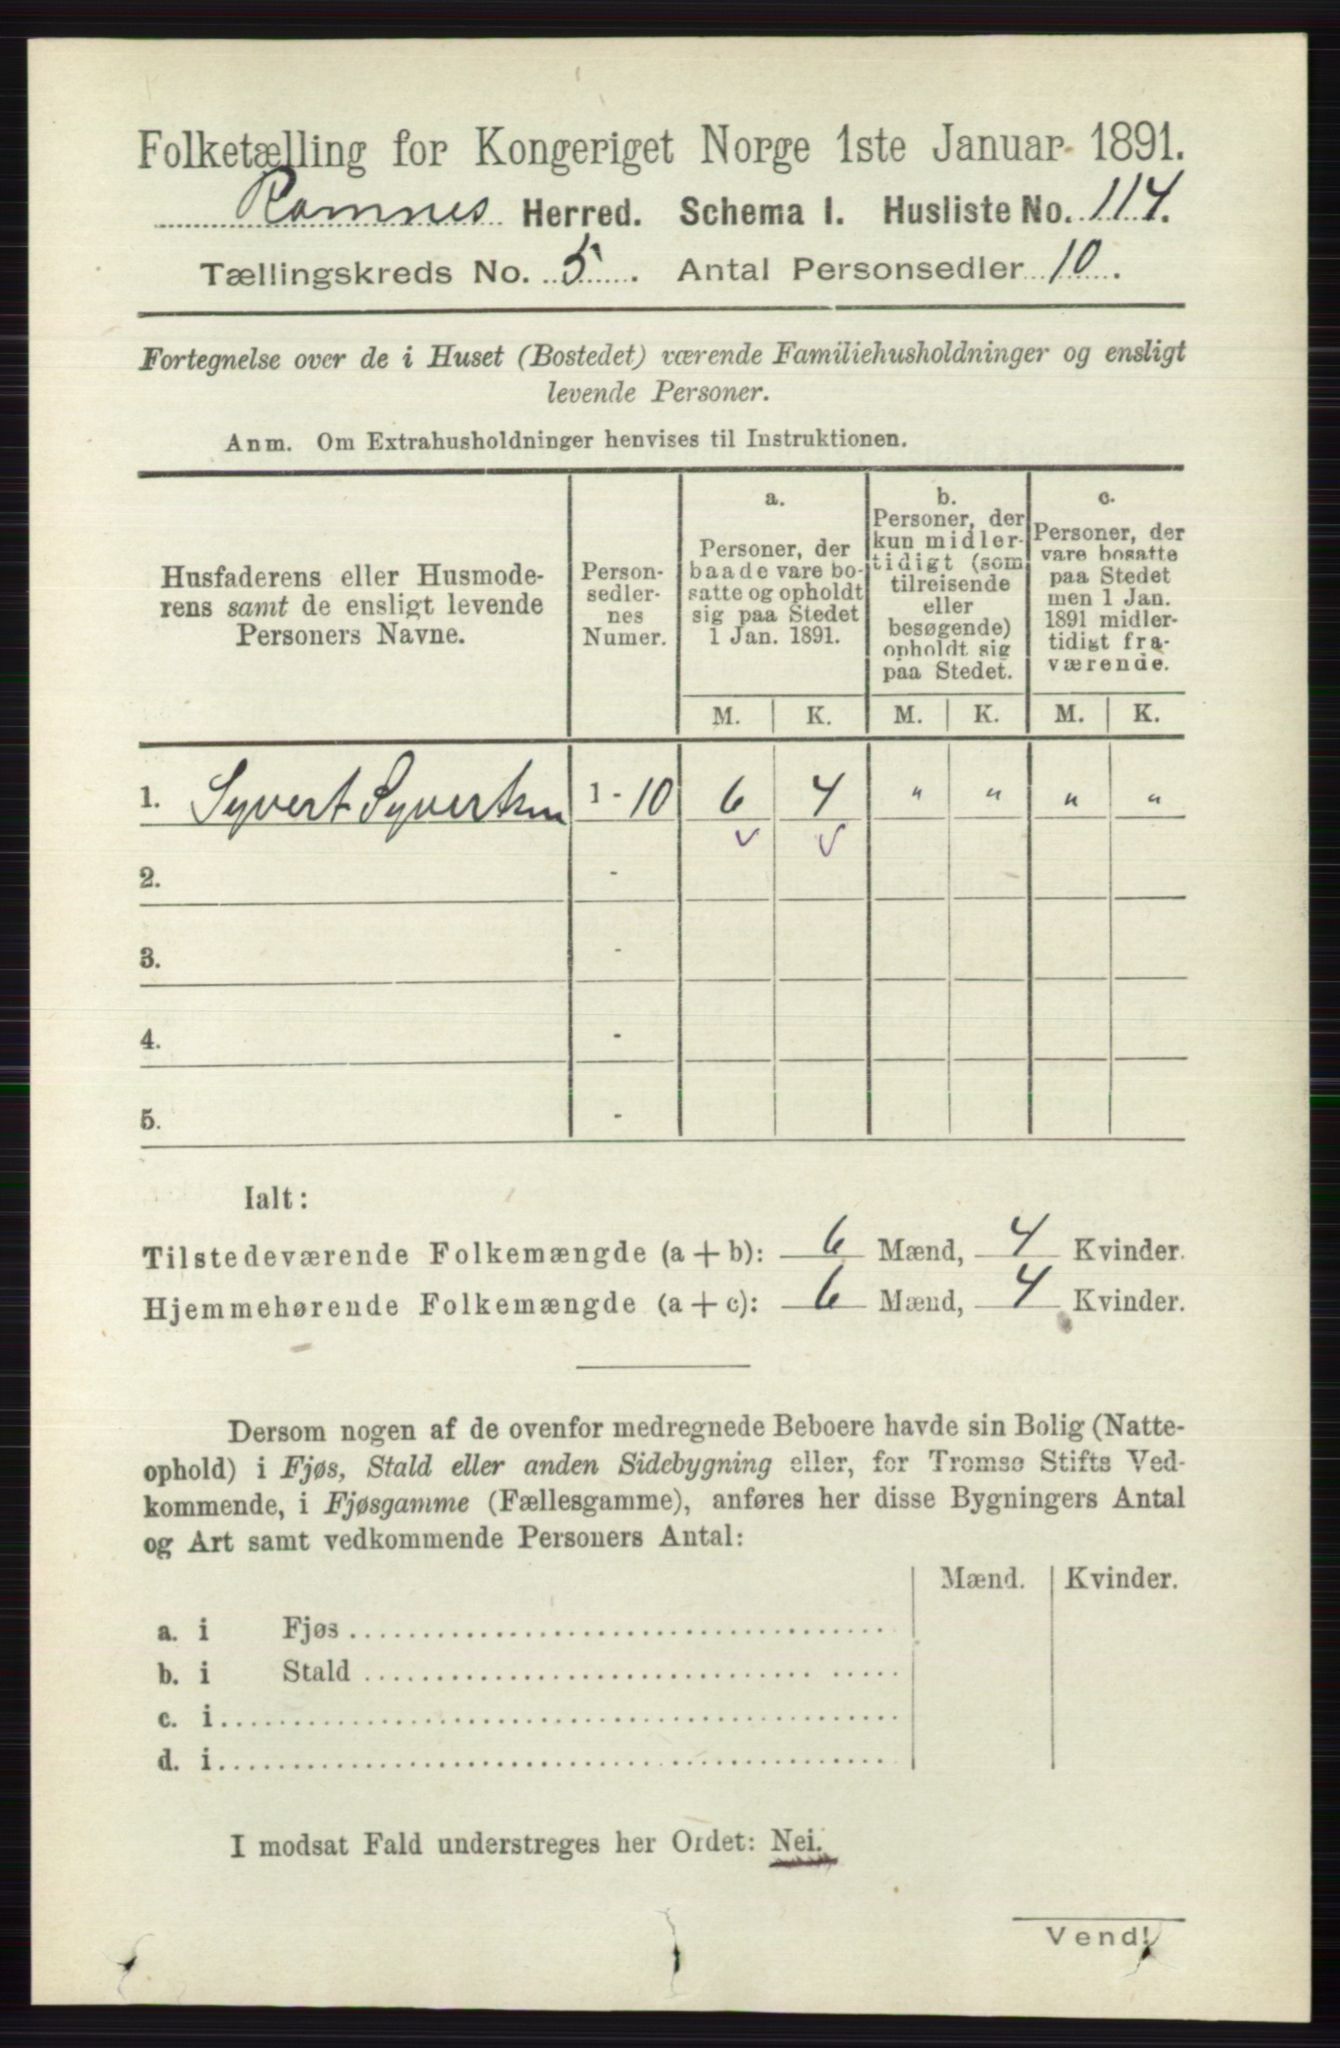 Folketælling for Kongeriget Norge 1ste Januar 1891.
Ramnes Herred. Schema I. Husliste No. 114.
Tællingskreds No. 5. Antal Personsedler 10.
Fortegnelse over de i Huset (Bostedet) værende Familiehusholdninger og ensligt
levende Personer.
Anm. Om Extrahusholdninger henvises til Instruktionen.
Husfaderens eller Husmode-
rens samt de ensligt levende
Personers Navne.
Person-
sedler-
nes
Numer.
a.
Personer, der
baade vare bo-
satte og opholdt
sig paa Stedet
1 Jan. 1891.
b.
Personer, der
kun midler-
tidigt (som
tilreisende
eller
besøgende)
opholdt sig
paa Stedet.
c.
Personer, der
vare bosatte
paa Stedet
men 1 Jan.
1891 midler-
tidigt fra-
værende.
M. K. M. K. M. K.
1. Syvert Syvertsen 1 - 10 6 4 " " " "
2. -
3. -
4. -
5. -
Ialt:
Tilstedeværende Folkemængde (a + b): 6 Mænd, 4 Kvinder.
Hjemmehørende Folkemængde (a + c): 6 Mænd, 4 Kvinder.
Dersom nogen af de ovenfor medregnede Beboere havde sin Bolig (Natte-
ophold) i Fjøs, Stald eller anden Sidebygning eller, for Tromsø Stifts Ved-
kommende, i Fjøsgamme (Fællesgamme), anføres her disse Bygningers Antal
og Art samt vedkommende Personers Antal:
Mænd. Kvinder.
a. i Fjøs
b. i Stald
c. i
d. i
I modsat Fald understreges her Ordet: Nei.
Vend!